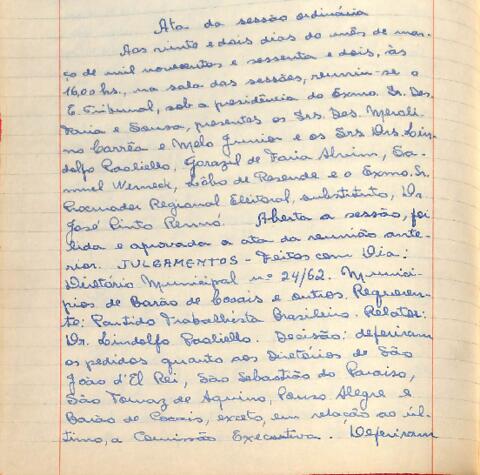 Ata da sessão ordinária
Aos vinte e dois dias do mês de mar-
ço de mil novecentos e sessenta e dois, às
16,00 hs., na sala das sessões, reuniu-se o
E. Tribunal, sob a presidência do Exmo. Sr. Des.
Faria e Sousa, presentes os Srs. Des. Meroli-
no Corrêa e Melo Junior e os Srs. Drs. Lin-
dolfo Paoliello, Gorazil de Faria Alvim, Sa-
muel Werneck, Lôbo de Resende e o Exmo. Sr.
Procurador Regional Eleitoral, substituto, Dr.
José Pinto Rennó. Aberta a sessão, foi
lida e aprovada a ata da reunião ante-
rior. JULGAMENTOS - Feitos com Dia:
Diretório Municipal nº 24/62. Municí-
pios de Barão de Cocais e outros. Requeren-
te: Partido Trabalhista Brasileiro. Relator:
Dr. Lindolfo Paoliello. Decisão: deferiram
os pedidos quanto aos Diretórios de São
João d'El Rei, São Sebastião do Paraiso,
São Tomaz de Aquino, Pouso Alegre e
Barão de Cocais, exceto, em relação ao úl-
timo, a Comissão Executiva. Deferiram